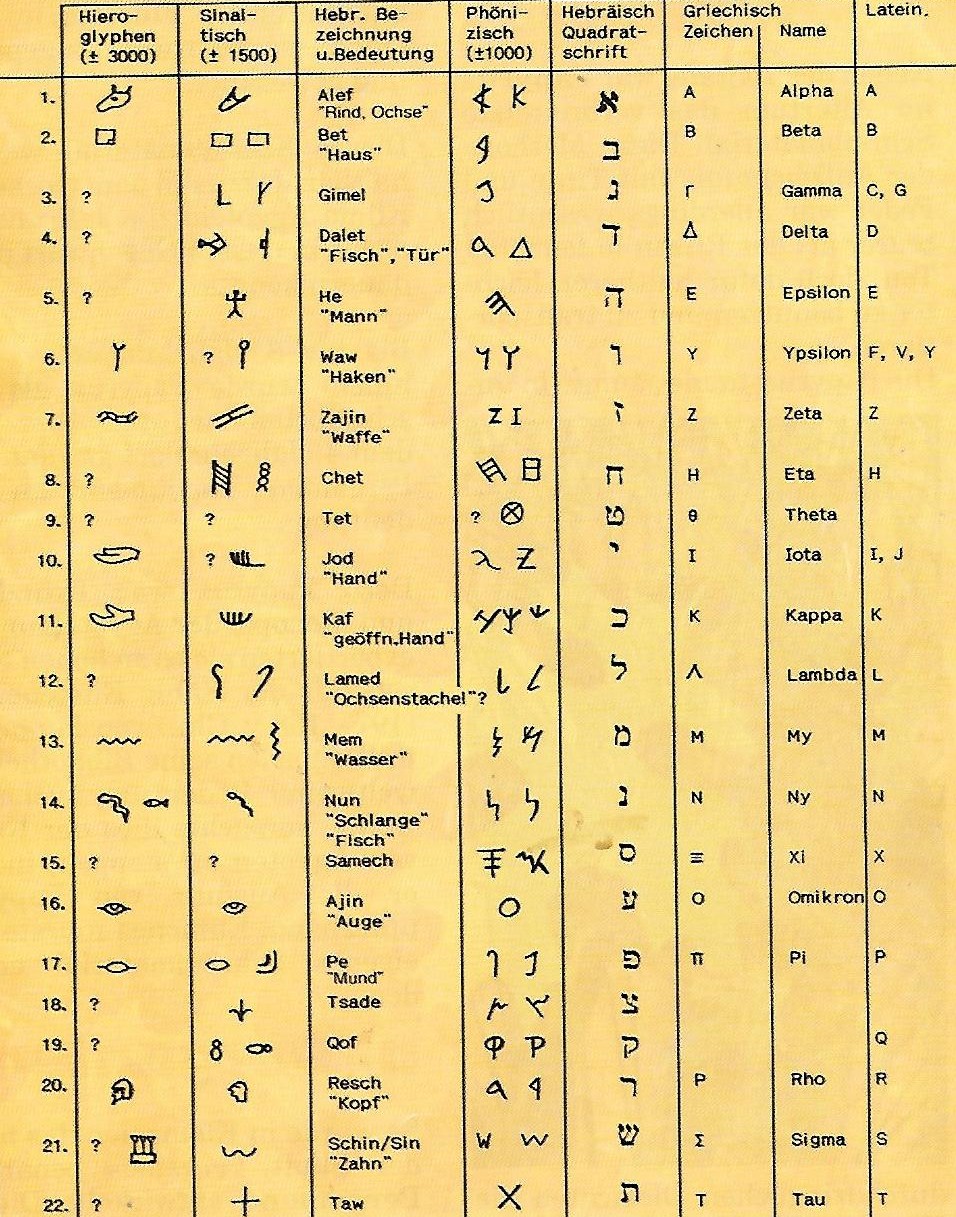 Hiero- Sinai- Hebr. Be- Phöni- Hebräisch Griechisch Latein.
glyphen tisch zeichnung zisch Quadrat- Zeichen Name
(± 3000) (± 1500) u.Bedeutung (±1000) schrift
1. Alef א Α Alpha A
"Rind, Ochse"
2. Bet ב Β Beta B
"Haus"
3. ? Gimel ג Γ Gamma C, G
4. ? Dalet ד Δ Delta D
"Fisch","Tür"
5. ? He ה Ε Epsilon E
"Mann"
6. ? Waw ו Υ Ypsilon F, V, Y
"Haken"
7. Zajin ז Ζ Zeta Z
"Waffe"
8. ? Chet ח Η Eta H
9. ? ? Tet ? ט θ Theta
10. ? Jod י Ι Iota I, J
"Hand"
11. Kaf כ Κ Kappa K
"geöffn.Hand"
12. ? Lamed ל Λ Lambda L
"Ochsenstachel"?
13. Mem מ Μ My M
"Wasser"
14. Nun נ Ν Ny N
"Schlange"
"Fisch"
15. ? ? Samech ס Ξ Xi X
16. Ajin ע Ο Omikron O
"Auge"
17. Pe פ π Pi P
"Mund"
18. ? Tsade צ
19. ? Qof ק Q
20. Resch ר Ρ Rho R
"Kopf"
21. ? Schin/Sin ש Σ Sigma S
"Zahn"
22. ? Taw ת Τ Tau T